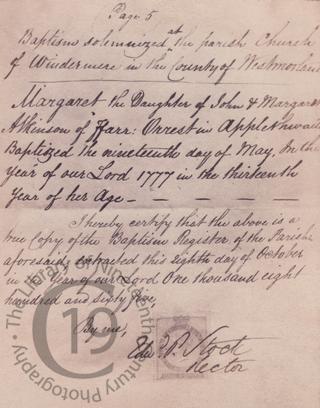 Page 5
Baptism solemnized at the parish Church
of Windermere in the County of Westmorland
Margaret the Daughter of John & Margaret
Atkinson of Farr: Orrest in Applethwaite
Baptized the nineteenth day of May. In the
Year of our Lord 1777 in the thirteenth
Year of her Age
I hereby certify that the above is a
true Copy of the Baptism Register of the Parish
aforesaid, extracted this Eighth day of October
in Year of our Lord One thousand eight
hundred and sixty five,
By me,
Edw. P. Stock
Rector
The Library of Nineteenth-Century Photography
C 19